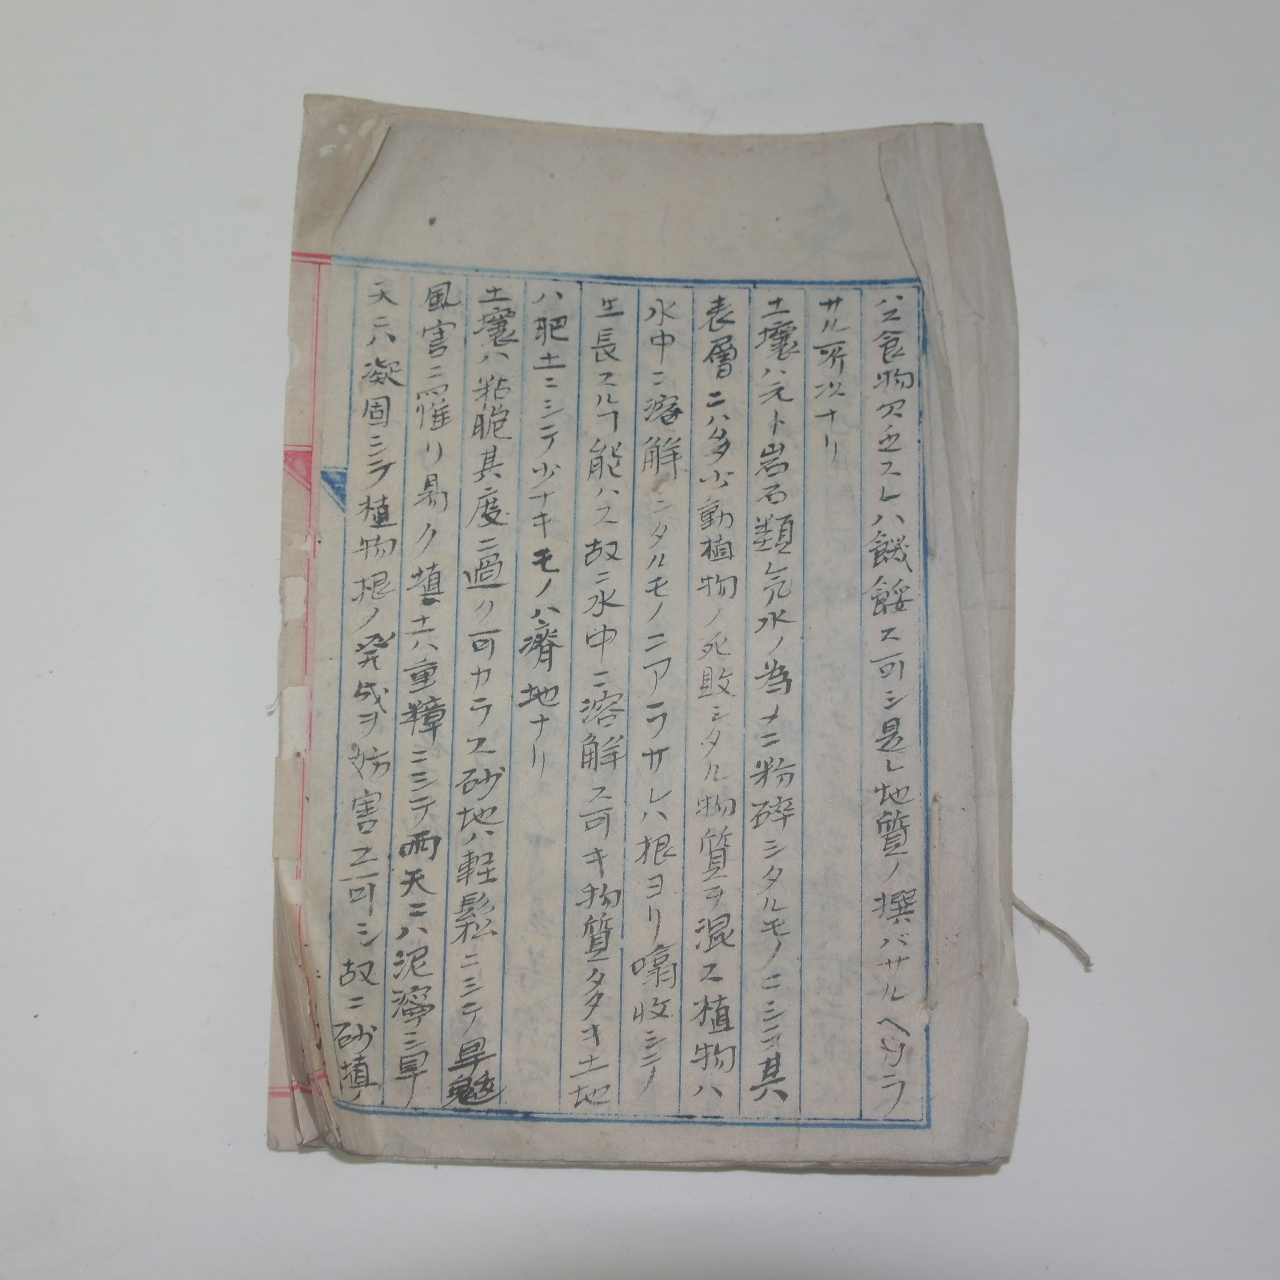 ハ食物欠乏スレハ饑餒ス可シ是レ地質ノ撰バサルヘカラ
サル所次ナリ
土壤ハ元ト岩石類気水ノ為メニ粉碎シタルモノニシテ其
表層ニハ多少動植物ノ死敗シタル物質ヲ混ス植物ハ
水中ニ溶解シタルモノニアラサレハ根ヨリ收シテ
生長スルヿ能ハス故ニ水中ニ溶解ス可キ物質タタキ土地
ハ肥土ニシテ少ナキモノハ瘠地ナリ
土壤ハ粘脆其度ニ過ク可カラス砂地ハ軽鬆ニシテ旱魃
風害ニ罹リ易ク埴土ハ重粘ニシテ雨天ニハ泥濘旱
天ニハ凝固シテ植物根ノ発成ヲ妨害ス可シ故ニ砂埴ノ